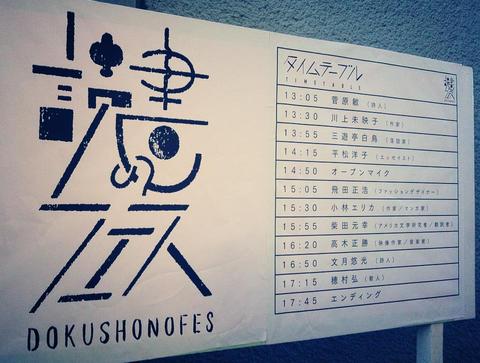 読書のフェス
DOKUSHONOFES
タイムテーブル
TIMETABLE
13:05 菅原敏（詩人）
13:30 川上未映子（作家）
13:55 三遊亭白鳥（落語家）
14:15 平松洋子（エッセイスト）
14:50 オープンマイク
15:05 飛田正浩（ファッションデザイナー）
15:30 小林エリカ（作家／マンガ家）
15:55 柴田元幸（アメリカ文学研究者／翻訳者）
16:20 高木正勝（映像作家／音楽家）
16:50 文月悠光（詩人）
17:15 穂村弘（歌人）
17:45 エンディング